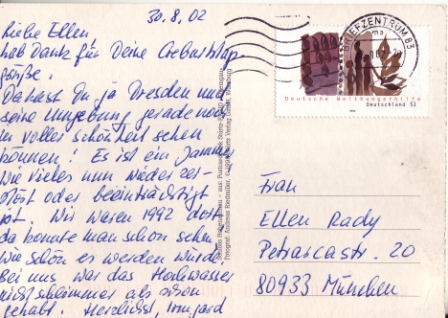 30.8.02
Liebe Ellen,
hab Dank für Deine Geburtstags
grüße.
Da hast Du ja Dresden und
seine Umgebung gerade noch
in voller Schönheit sehen
können! Es ist ein Jammer
wie vieles nun wieder zer-
stört oder beeinträchtigt
ist. Wir waren 1992 dort
da konnte man schon sehen
wie schön es werden würde.
Bei uns war das Hochwasser
nicht schlimmer als schon
gehabt. Herzlichst, Irmgard
BRIEFZENTRUM 83
Deutsche Welthungerhilfe
Deutschland 51
Frau
Ellen Rady
Petrarcastr. 20
80933 München